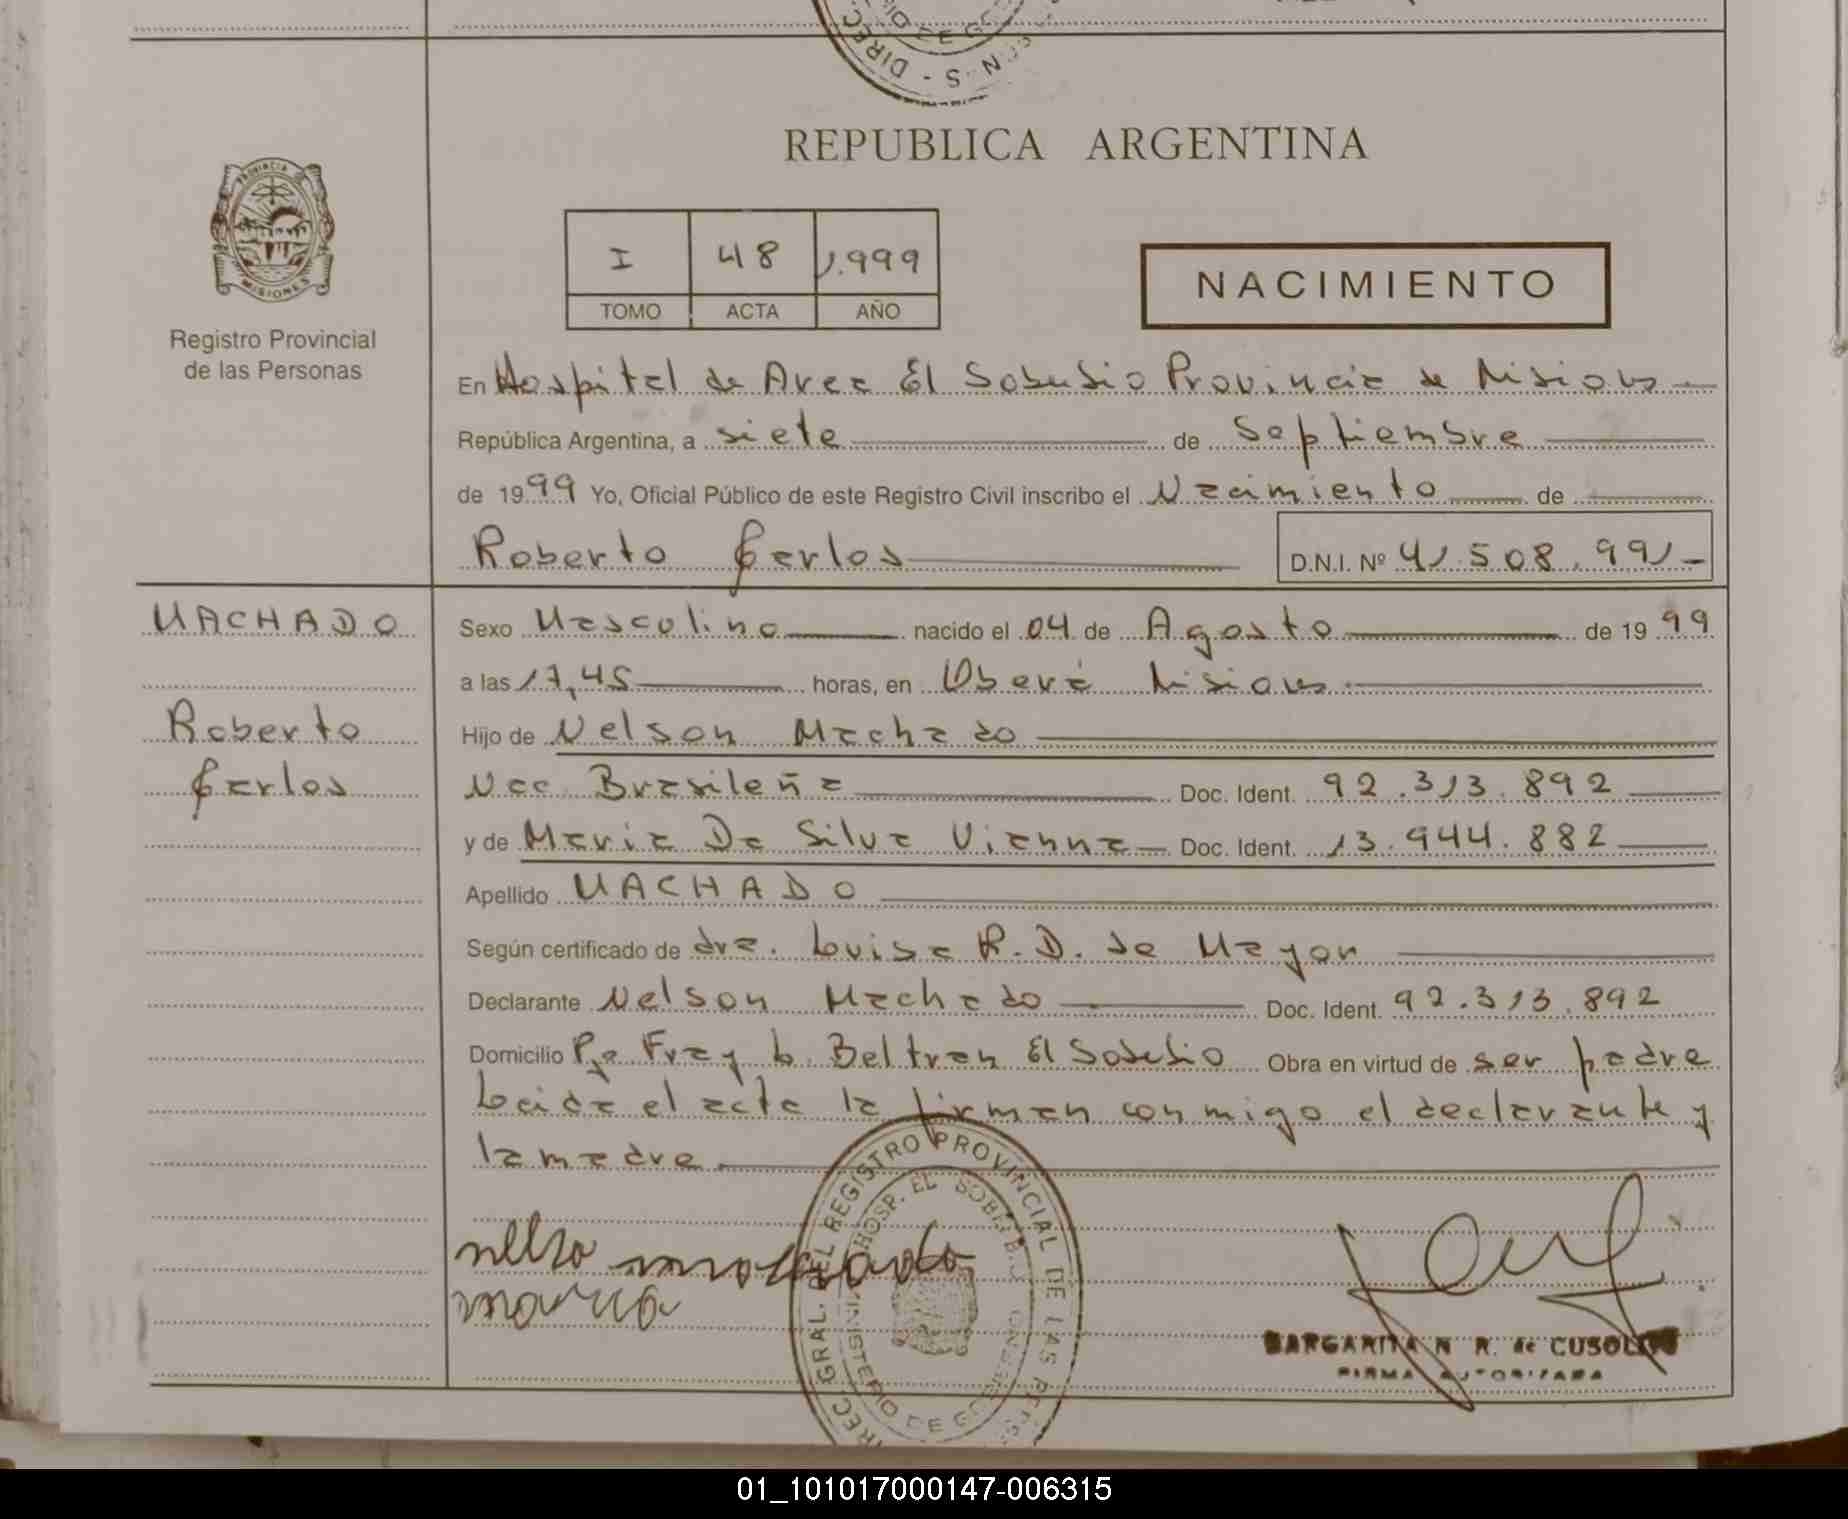 REPUBLICA ARGENTINA
PROVINCIA DE
MISIONES
Registro Provincial
de las Personas
I 48 1.999
TOMO ACTA AÑO
NACIMIENTO
En Hospital de Area El Soberbio Provincia de Misiones
República Argentina, a siete de Septiembre
de 1999 Yo, Oficial Público de este Registro Civil inscribo el Nacimiento de
Roberto Carlos D.N.I. Nº 41.508.991-
MACHADO
Roberto
Carlos
Sexo Masculino nacido el 04 de Agosto de 1999
a las 17,45 horas, en Oberá Misiones
Hijo de Nelson Machado
Nac Brasileña Doc. Ident. 92.313.892
y de Maria Da Silva Vianna Doc. Ident. 13.944.882
Apellido MACHADO
Según certificado de dra. Luisa R. D. de Mayor
Declarante Nelson Machado Doc. Ident. 92.313.892
Domicilio Pje Fray L. Beltran El Soberbio Obra en virtud de ser padre
Leida el acta la firman conmigo el declarante y
la madre
DIREC. GRAL. DEL REGISTRO PROVINCIAL DE LAS
HOSP. EL SOBERBIO
MINISTERIO DE GOBIERNO
maria
MARGARITA N R. de
FIRMA AUTORIZADA
01_101017000147-006315